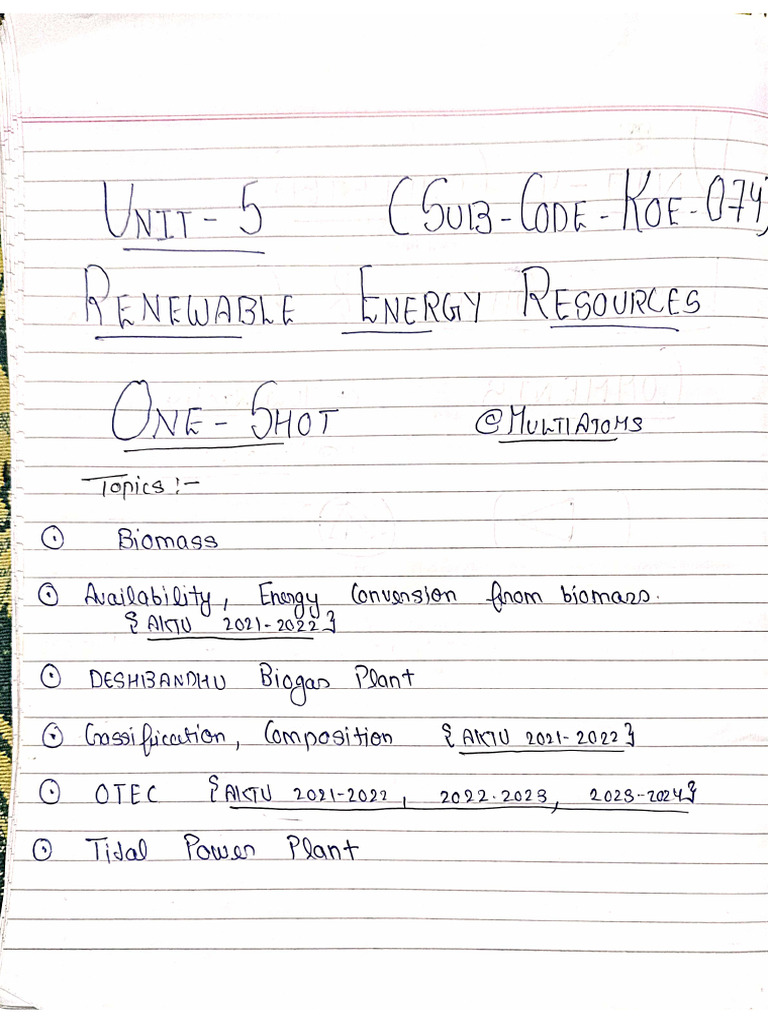 UNIT-5 (SUB-CODE-KOE-074)
RENEWABLE ENERGY RESOURCES
ONE-SHOT @MULTIATOMS
Topics :-
Biomass
Availability, Energy Conversion from biomass.
{AKTU 2021-2022}
DESHBANDHU Biogas Plant
Classification, Composition {AKTU 2021-2022}
OTEC {AKTU 2021-2022, 2022-2023, 2023-2024}
Tidal Power Plant